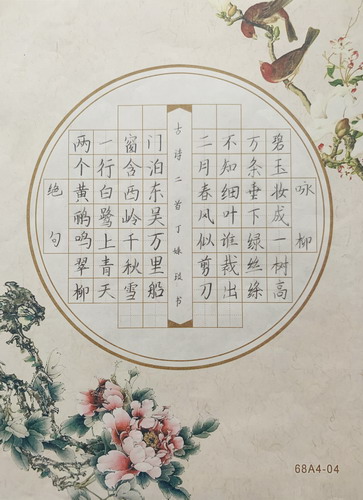 咏柳
碧玉妆成一树高
万条垂下绿丝绦
不知细叶谁裁出
二月春风似剪刀
古诗二首丁妹书
绝句
两个黄鹂鸣翠柳
一行白鹭上青天
窗含西岭千秋雪
门泊东吴万里船
68A4-04